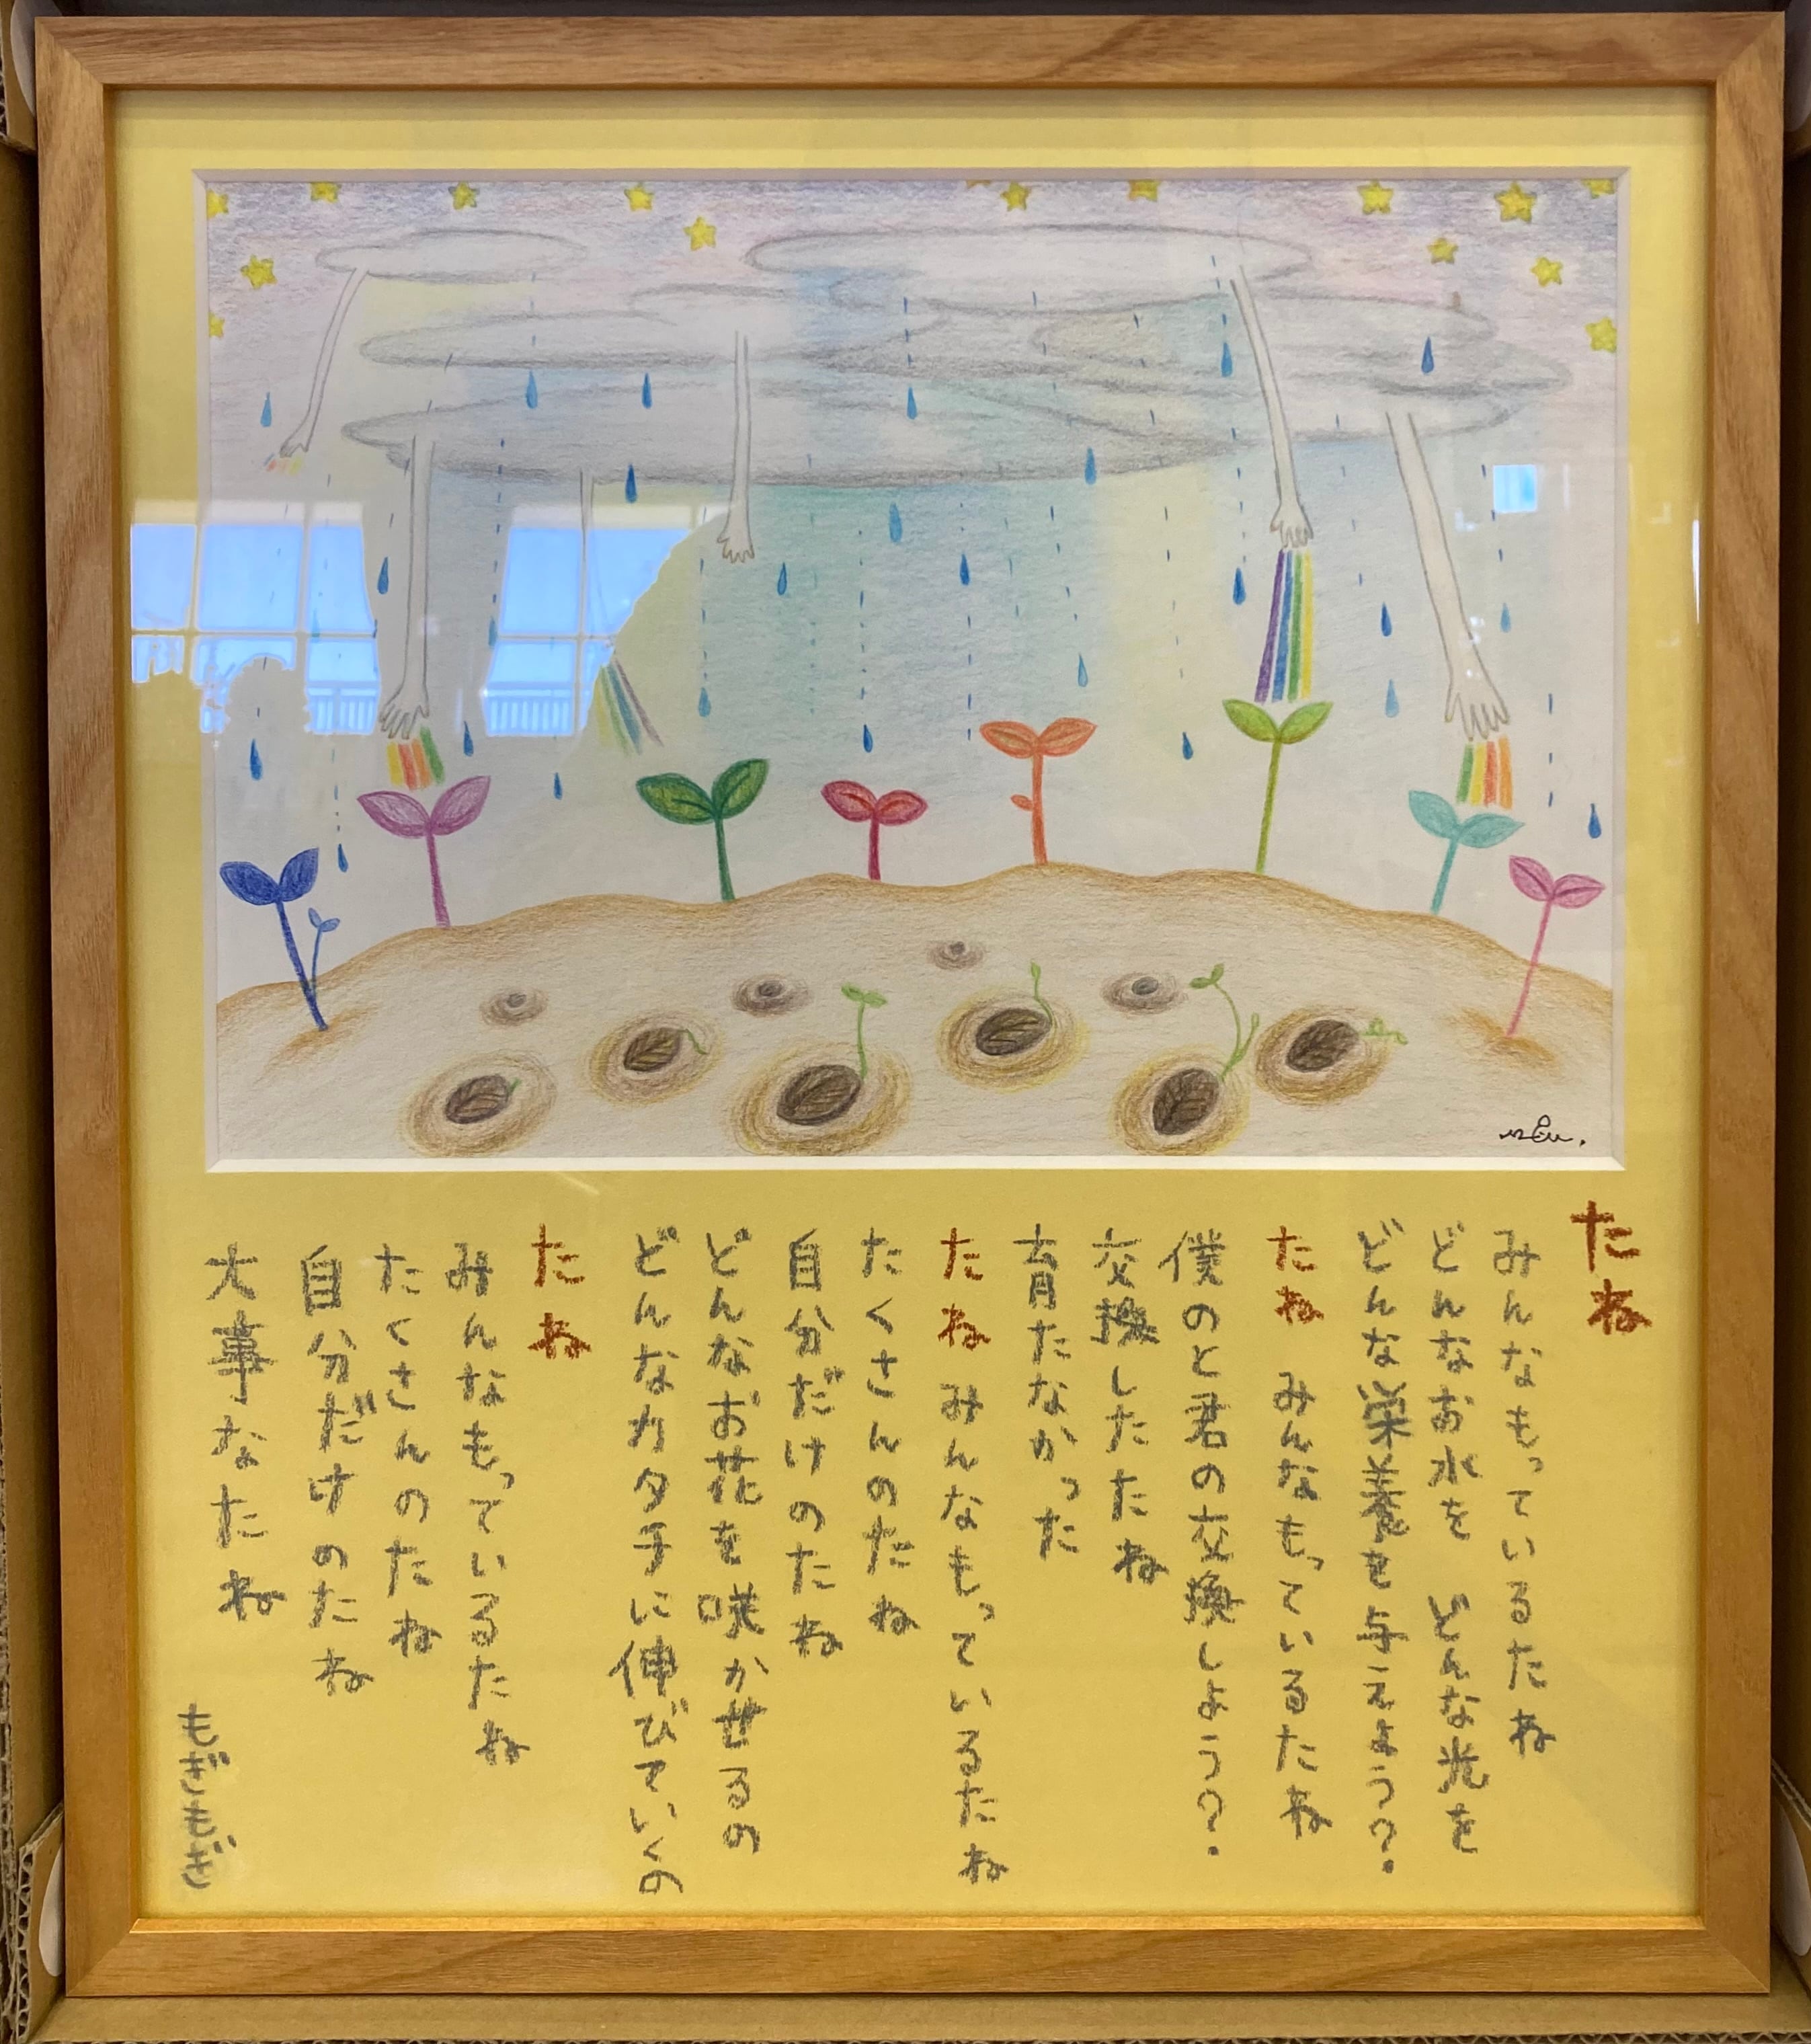 たね
みんなもっているたね
どんなお水を　どんな光を
どんな栄養を与えよう？
たね　みんなもっているたね
僕のと君の交換しよう？
交換したたね
育たなかった
たね　みんなもっているたね
たくさんのたね
自分だけのたね
どんなお花を咲かせるの
どんなカタチに伸びていくの
たね
みんなもっているたね
たくさんのたね
自分だけのたね
大事なたね
もぎもぎ